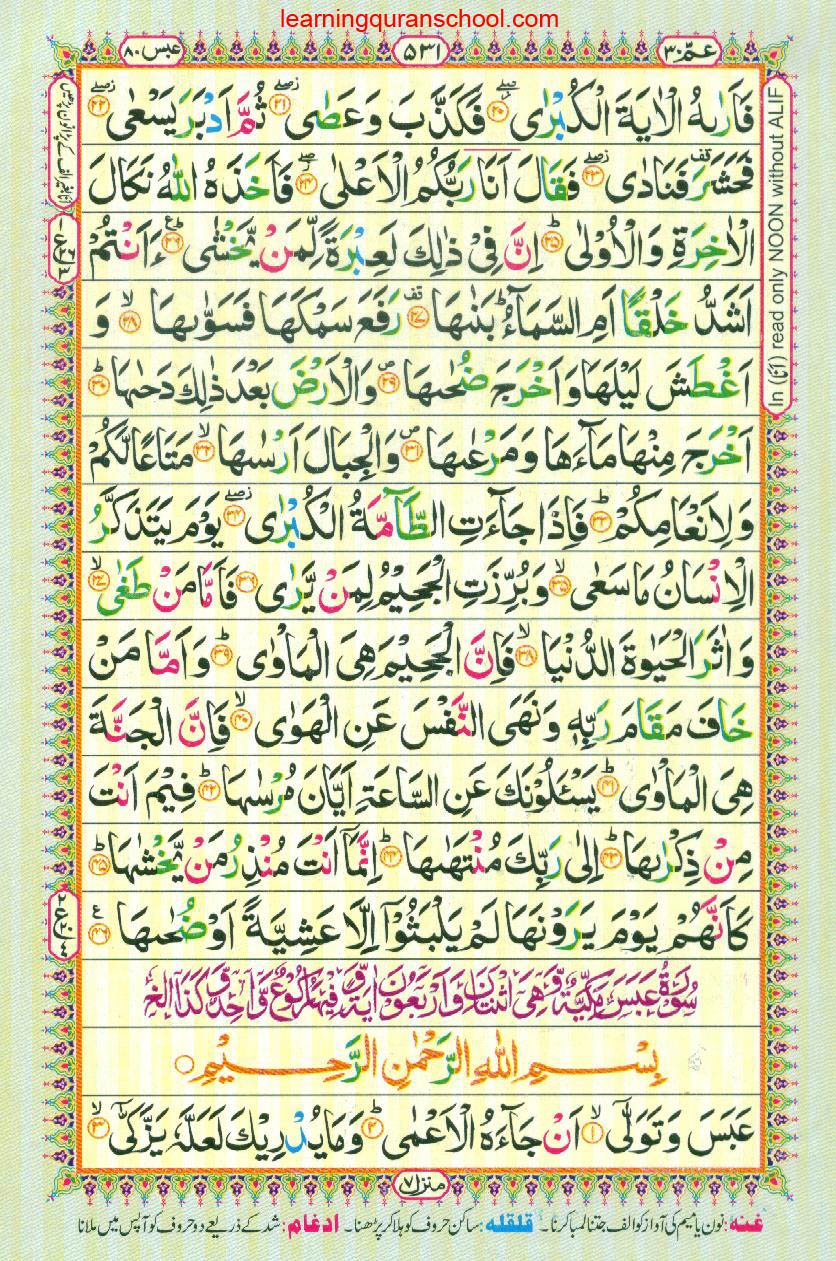 learningquranschool.com
عَمَّ ٣٠
٥٣١
عبس ٨٠
فَاَرٰىهُ الْاٰيَةَ الْكُبْرٰى ۖ ۟﴿۲۰﴾ فَكَذَّبَ وَعَصٰى ۖ ﴿۲۱﴾ ثُمَّ اَدْبَرَ يَسْعٰى ۖ ﴿۲۲﴾
فَحَشَرَ فَنَادٰى ۖ ﴿۲۳﴾ فَقَالَ اَنَا رَبُّكُمُ الْاَعْلٰى ۖ ﴿۲۴﴾ فَاَخَذَهُ اللّٰهُ نَكَالَ
الْاٰخِرَةِ وَالْاُوْلٰى ؕ﴿۲۵﴾ اِنَّ فِيْ ذٰلِكَ لَعِبْرَةً لِّمَنْ يَّخْشٰى ؕ﴿۲۶﴾ ءَاَنْتُمْ
اَشَدُّ خَلْقًا اَمِ السَّمَآءُ ؕ بَنٰىهَا ﴿۲۷﴾ رَفَعَ سَمْكَهَا فَسَوّٰىهَا ۙ﴿۲۸﴾ وَ
اَغْطَشَ لَيْلَهَا وَاَخْرَجَ ضُحٰىهَا ۪﴿۲۹﴾ وَالْاَرْضَ بَعْدَ ذٰلِكَ دَحٰىهَا ؕ﴿۳۰﴾
اَخْرَجَ مِنْهَا مَآءَهَا وَمَرْعٰىهَا ۪﴿۳۱﴾ وَالْجِبَالَ اَرْسٰىهَا ۙ﴿۳۲﴾ مَتَاعًا لَّكُمْ
وَلِاَنْعَامِكُمْ ؕ﴿۳۳﴾ فَاِذَا جَآءَتِ الطَّآمَّةُ الْكُبْرٰى ۖ ﴿۳۴﴾ يَوْمَ يَتَذَكَّرُ
الْاِنْسَانُ مَا سَعٰى ۙ﴿۳۵﴾ وَبُرِّزَتِ الْجَحِيْمُ لِمَنْ يَّرٰى ﴿۳۶﴾ فَاَمَّا مَنْ طَغٰى ۙ﴿۳۷﴾
وَاٰثَرَ الْحَيٰوةَ الدُّنْيَا ۙ﴿۳۸﴾ فَاِنَّ الْجَحِيْمَ هِيَ الْمَاْوٰى ؕ﴿۳۹﴾ وَاَمَّا مَنْ
خَافَ مَقَامَ رَبِّهٖ وَنَهَى النَّفْسَ عَنِ الْهَوٰى ۙ﴿۴۰﴾ فَاِنَّ الْجَنَّةَ
هِيَ الْمَاْوٰى ؕ﴿۴۱﴾ يَسْـَٔلُوْنَكَ عَنِ السَّاعَةِ اَيَّانَ مُرْسٰىهَا ؕ﴿۴۲﴾ فِيْمَ اَنْتَ
مِنْ ذِكْرٰىهَا ؕ﴿۴۳﴾ اِلٰى رَبِّكَ مُنْتَهٰىهَا ؕ﴿۴۴﴾ اِنَّمَآ اَنْتَ مُنْذِرُ مَنْ يَّخْشٰىهَا ؕ﴿۴۵﴾
كَاَنَّهُمْ يَوْمَ يَرَوْنَهَا لَمْ يَلْبَثُوْٓا اِلَّا عَشِيَّةً اَوْ ضُحٰىهَا ﴿۴۶﴾ ع
سُوْرَةُ عَبَسَ مَكِّيَّةٌ وَّهِيَ اثْنَتَانِ وَاَرْبَعُوْنَ اٰيَةً وَّفِيْهَا رُكُوْعٌ وَّاحِدٌ
بِسْمِ اللّٰهِ الرَّحْمٰنِ الرَّحِيْمِ
عَبَسَ وَتَوَلّٰٓى ۙ﴿۱﴾ اَنْ جَآءَهُ الْاَعْمٰى ؕ﴿۲﴾ وَمَا يُدْرِيْكَ لَعَلَّهٗ يَزَّكّٰٓى ۙ﴿۳﴾
منزل ٧
غنه: نون یا میم کی آواز کو الف جتنا لمبا کرنا۔ قلقله: ساکن حروف کو ہلا کر پڑھنا۔ ادغام: شد کے ذریعے دو حروف کو آپس میں ملانا
In (اَنَا) read only NOON without ALIF